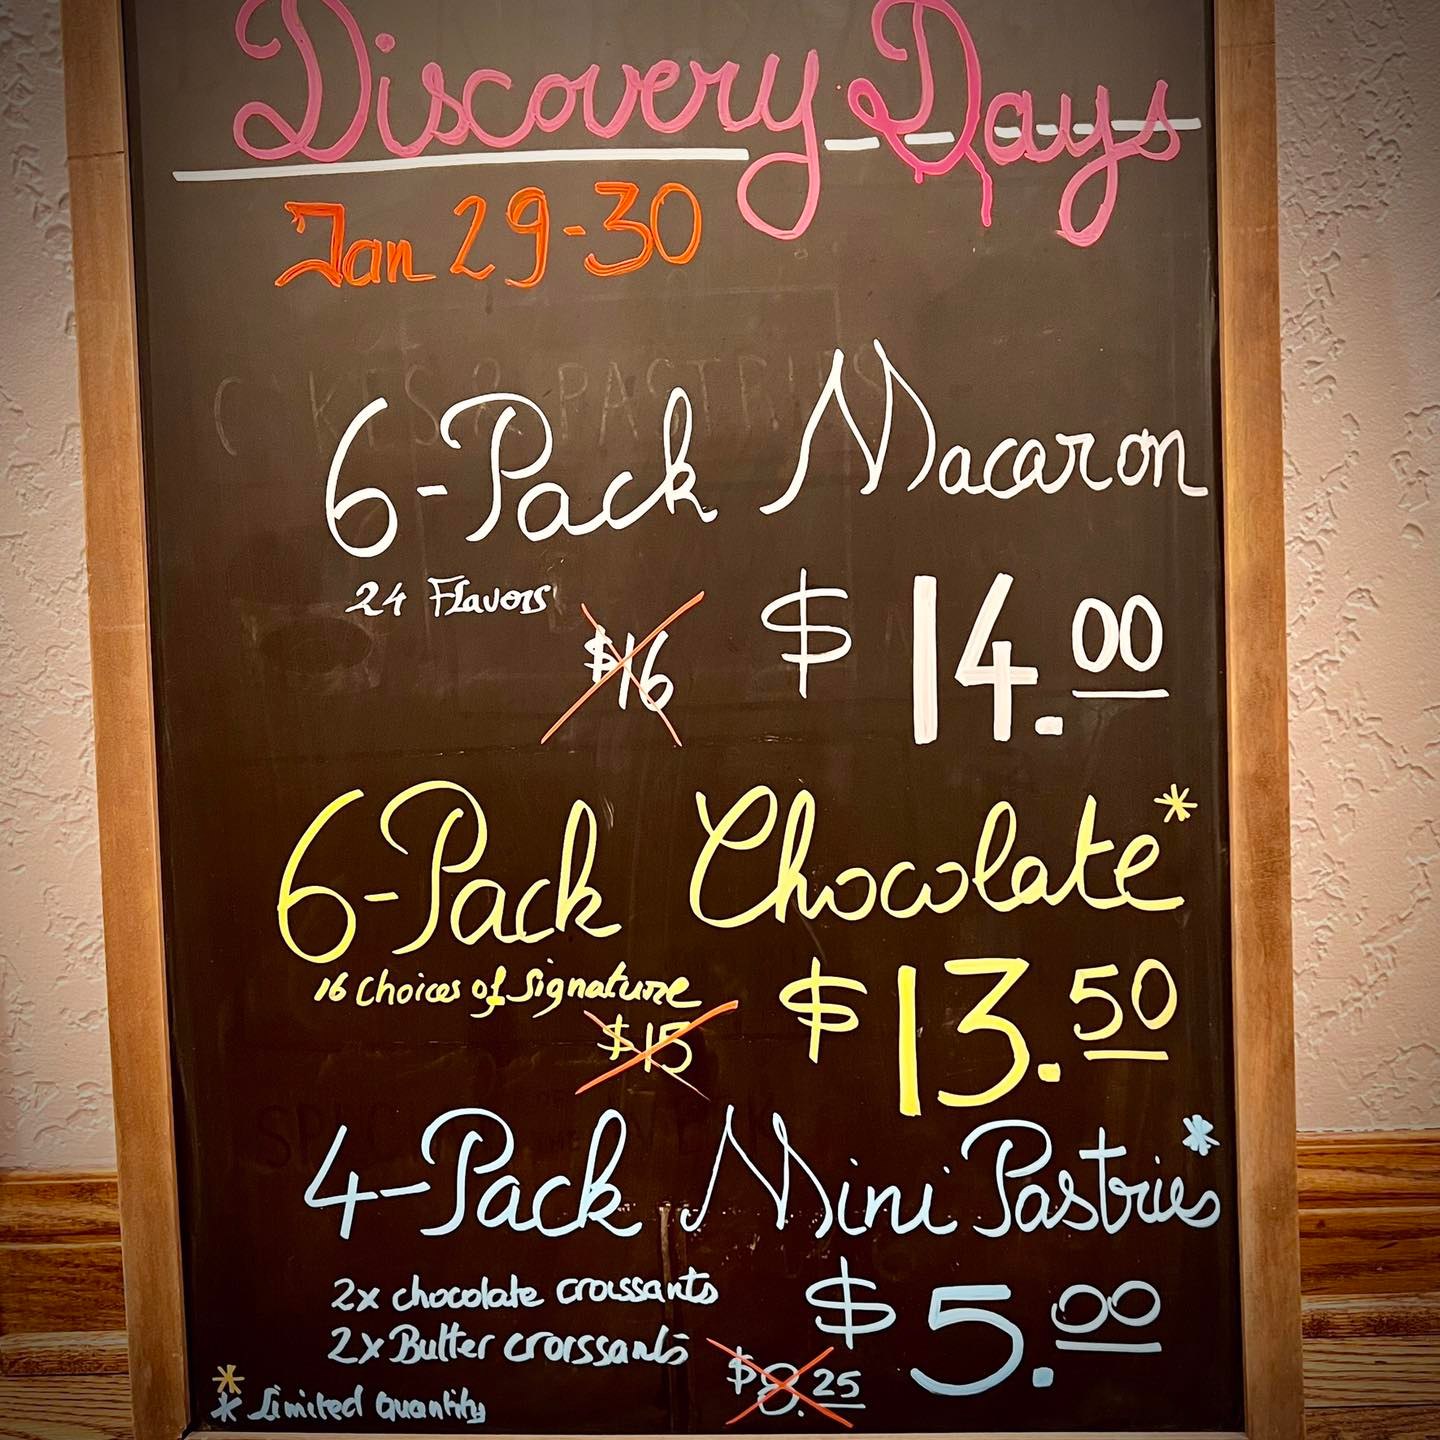 Discovery Days
Jan 29-30
CAKES & PASTRIES
6-Pack Macaron
24 Flavors
$16
$ 14.00
6-Pack Chocolate*
16 Choices of Signature
$15
$ 13.50
4-Pack Mini Pastries*
2x chocolate croissants
2x Butter croissants
$8.25
$ 5.00
*
* Limited Quantity